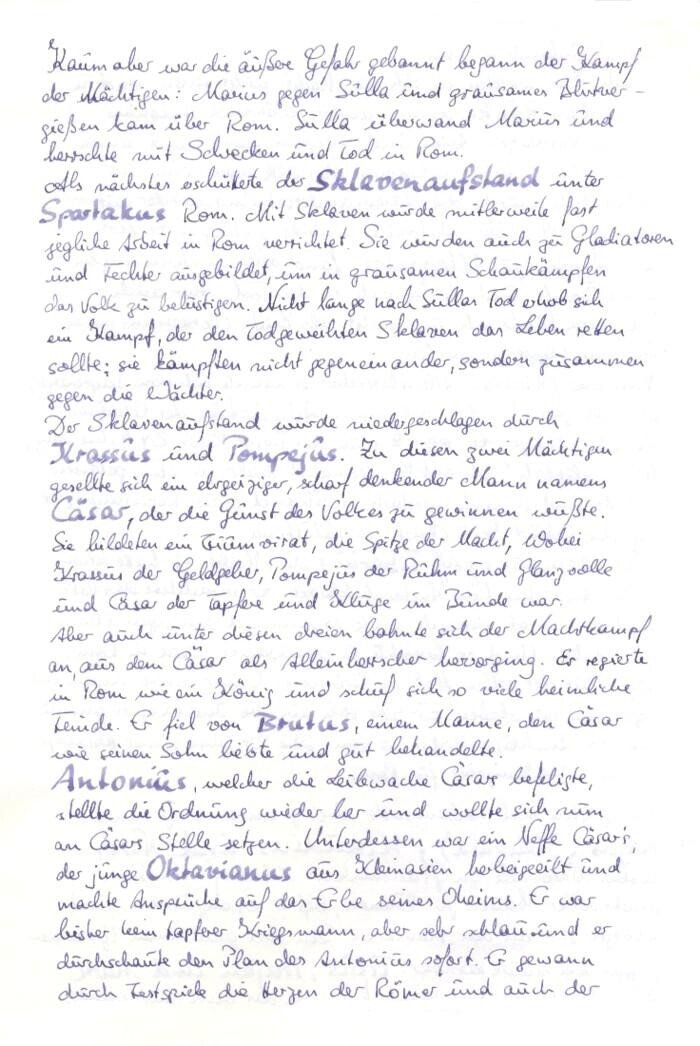 Kaum aber war die äußere Gefahr gebannt begann der Kampf
der Mächtigen: Marius gegen Sulla und grausames Blutver-
gießen kam über Rom. Sulla überwand Marius und
herrschte mit Schrecken und Tod in Rom.
Als nächstes erschütterte der Sklavenaufstand unter
Spartakus Rom. Mit Sklaven wurde mitlerweile fast
jegliche Arbeit in Rom verrichtet. Sie wurden auch zu Gladiatoren
und Fechter ausgebildet, um in grausamen Schaukämpfen
das Volk zu belustigen. Nicht lange nach Sullas Tod erhob sich
ein Kampf, der den Todgeweihten Sklaven das Leben retten
sollte; sie kämpften nicht gegeneinander, sondern zusammen
gegen die Wächter.
Der Sklavenaufstand wurde niedergeschlagen durch
Krassus und Pompejus. Zu diesen zwei Mächtigen
gesellte sich ein ehrgeiziger, scharf denkender Mann namens
Cäsar, der die Gunst des Volkes zu gewinnen wußte.
Sie bildeten ein Triumvirat, die Spitze der Macht, Wobei
Krassus der Geldgeber, Pompejus der Ruhm und Glanzvolle
und Cäsar der Tapfere und Kluge im Bunde war.
Aber auch unter diesen dreien bahnte sich der Machtkampf
an, aus dem Cäsar als Alleinherrscher hervorging. Er regierte
in Rom wie ein König und schuf sich so viele heimliche
Feinde. Er fiel von Brutus, einem Manne, den Cäsar
wie seinen Sohn liebte und gut behandelte.
Antonius, welcher die Leibwache Cäsars befehligte,
stellte die Ordnung wieder her und wollte sich nun
an Cäsars Stelle setzen. Unterdessen war ein Neffe Cäsar's,
der junge Oktavianus aus Kleinasien herbeigeeilt und
machte Ansprüche auf das Erbe seines Oheims. Er war
bisher kein tapferer Kriegsmann, aber sehr schlau und er
durchschaute den Plan des Antonius sofort. Er gewann
durch Festspiele die Herzen der Römer und auch der